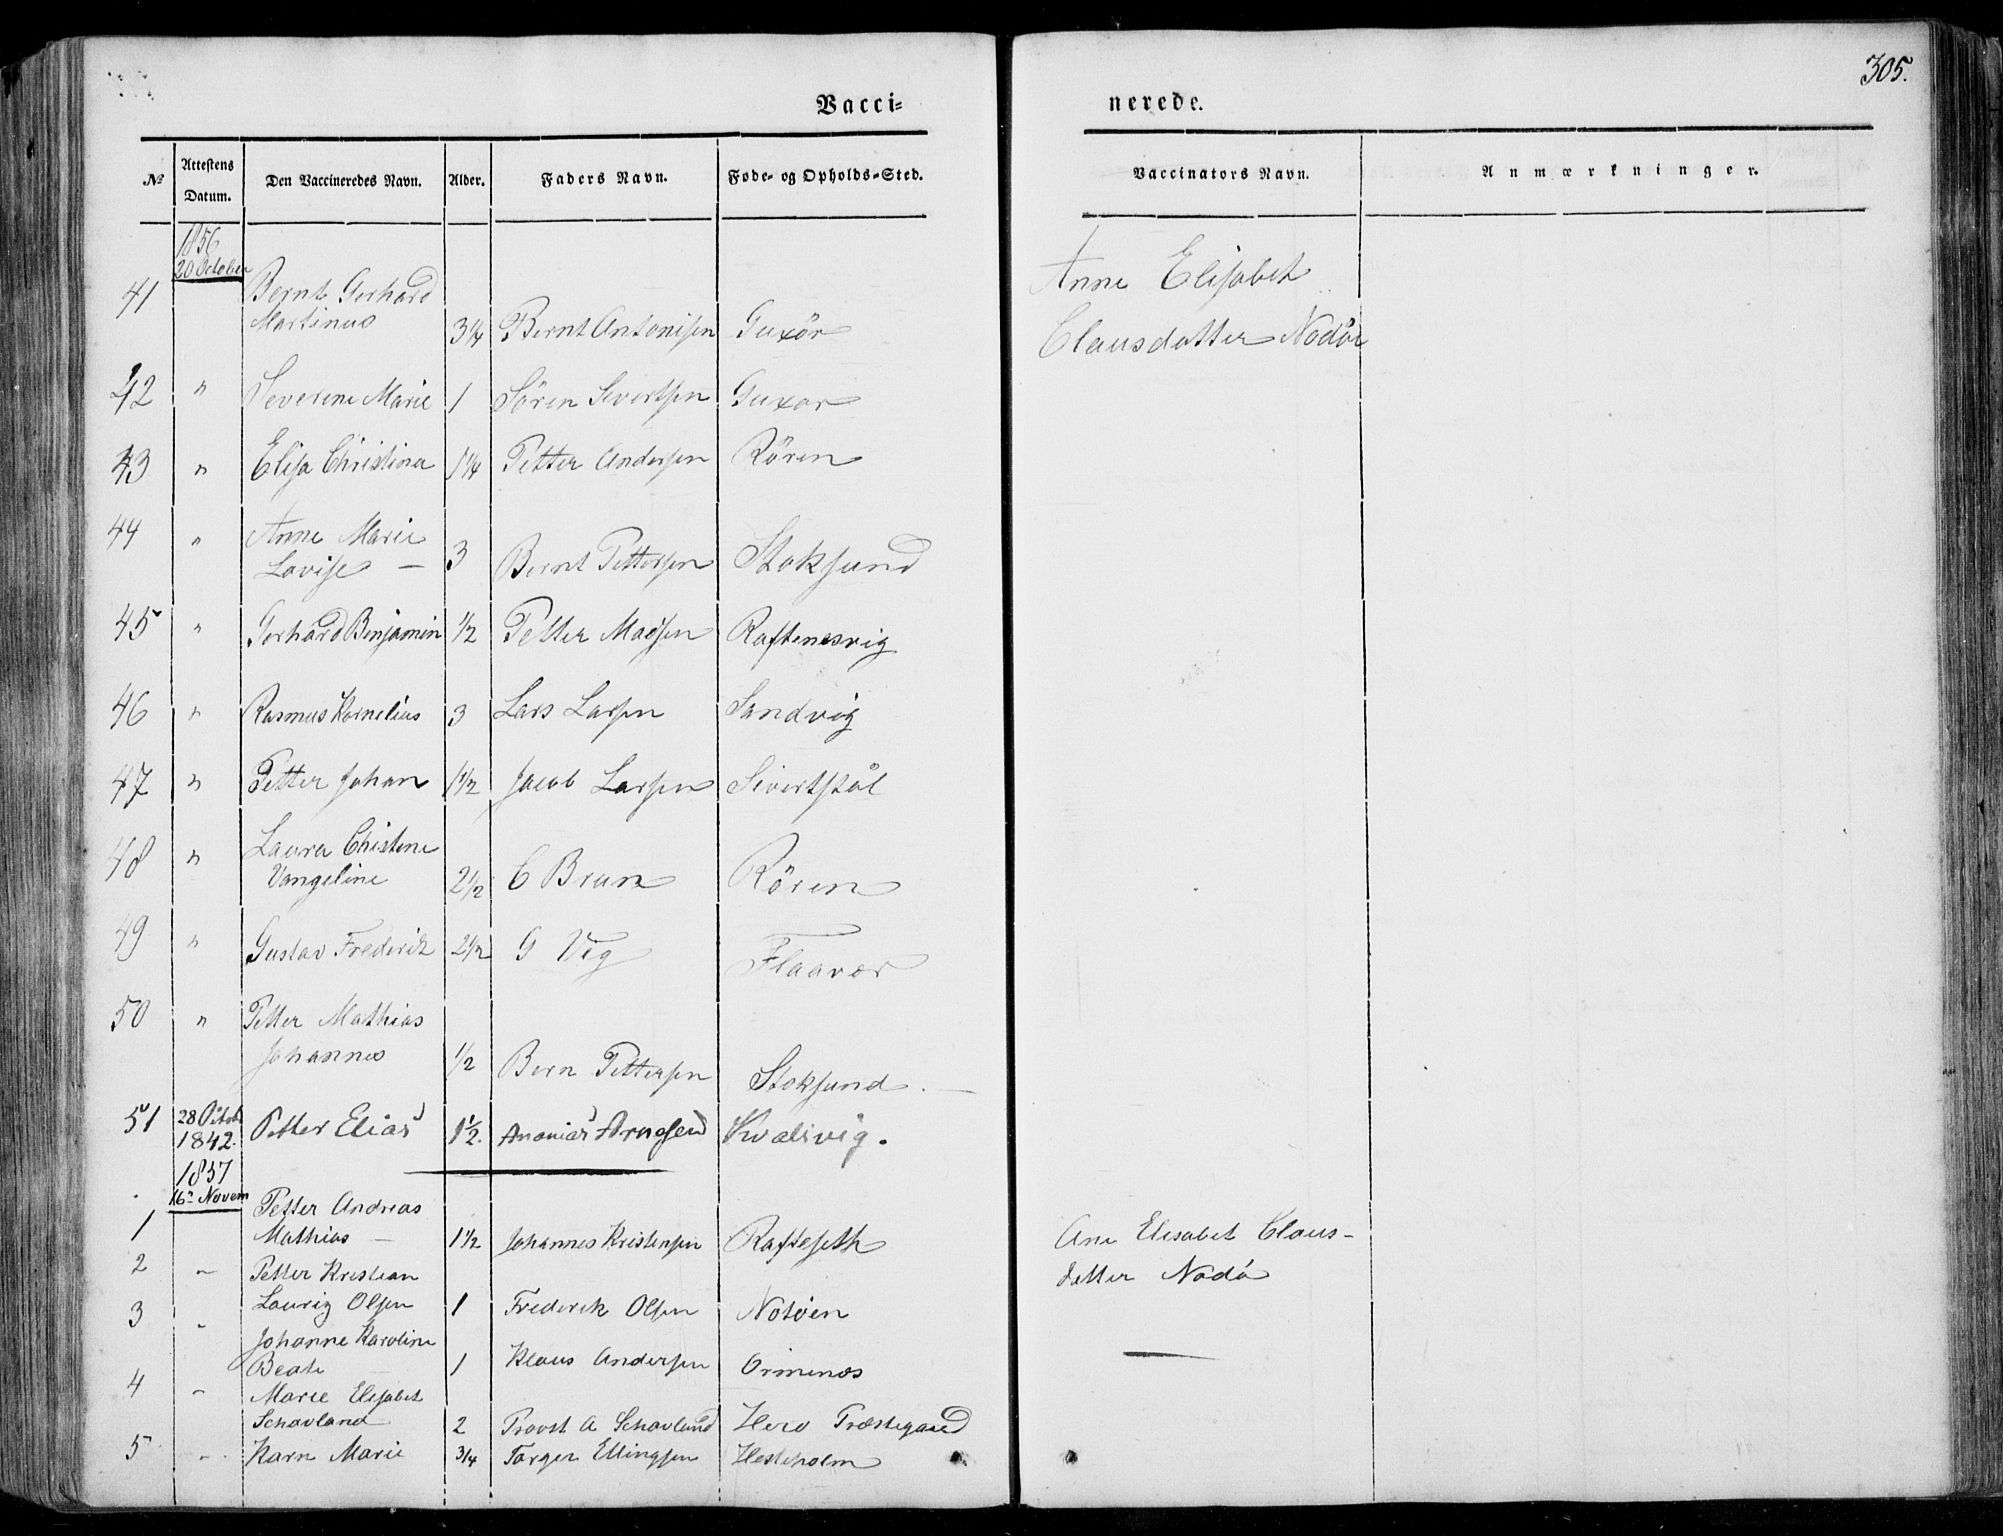 305.
Vacci= nerede.
№ Attestens Datum. Den Vaccineredes Navn. Alder. Faders Navn. Føde- og Opholds-Sted. Vaccinators Navn. Anmærkninger.
1856
20 October
41 Bernt Gerhard
Martinus 3 1/4 Bernt Antonisen Guxör
Anne Elisabet
Clausdatter Nodör
42 " Severine Marie 1 Sören Sivertsen Guxör
43 " Elisa Christina 1 1/4 Petter Andersen Rören
44 " Anne Marie
Lovise — 3 Bernt Pettersen Stoksund
45 " Gerhard Benjamin 1/2 Petter Madsen Raftenesvig
46 " Rasmus Kornelius 3 Lars Larsen Sandvig
47 " Petter Johan 1 1/2 Jacob Larsen Sivertstøl
48 " Laura Christene
Vangeline 2 1/2 C Brun Rören
49 " Gustav Frederik 2 1/2 G Veg Flaavær
50 " Petter Mathias
Johannes 1/2 Bern Pettersen Stoksund
51 28 Octob 1842. Petter Elias 1 1/2. Ananias Arnesen Kvalsvig.
1857
16n Novem
1 Petter Andreas
Mathias — 1 1/2 Johannes Kristensen Rafteseth
Ane Elisabet Claus-
datter Nodö
2 " Petter Kristian
Laurig Olsen 1 Frederik Olsen Notöen
3 " Johanne Karoline
Beate 1 Klaus Andersen Ormenes
4 " Marie Elisabet
Schavland 2 Provst A Schavland Herö Præstegaard
5 " Karn Marie 3/4 Torger Ellingsen Hesteholm